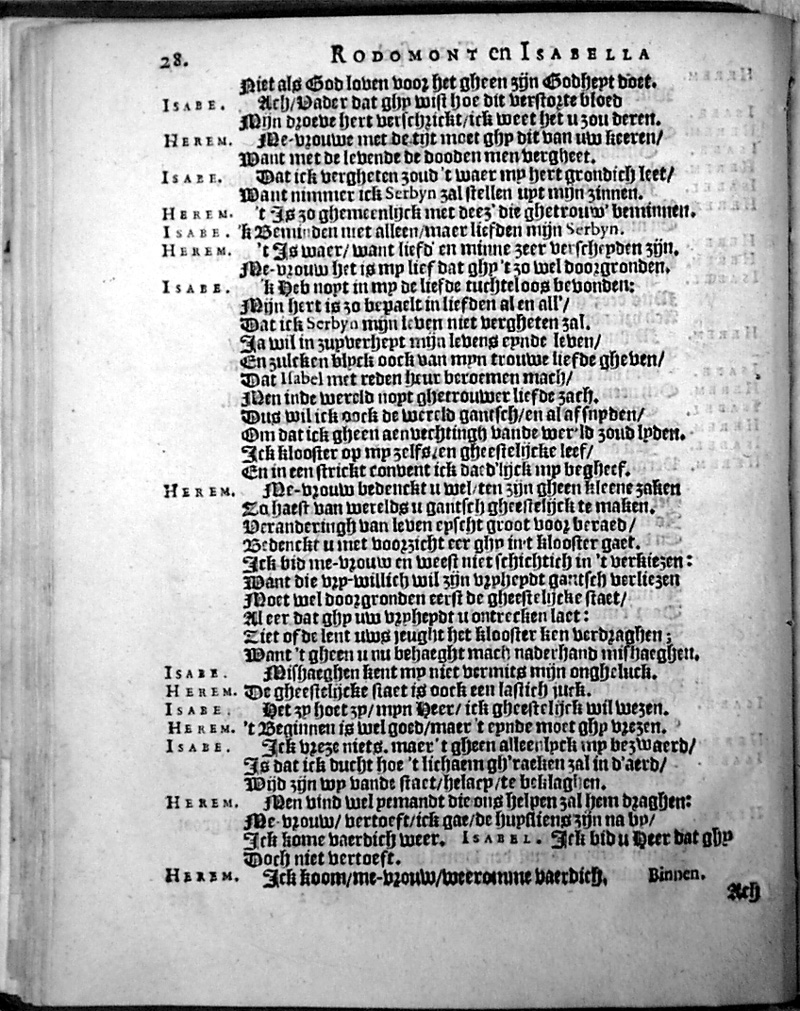 28. RODOMONT en ISABELLA
Niet als God loven voor het gheen zijn Godheyt doet.
ISABE. Ach/Vader dat ghy wist hoe dit verstorte bloed
Mijn droeve hert verschrickt/ick weet het u zou deren.
HEREM. Me-vrouwe met de tijt moet ghy dit van uw keeren/
Want met de levende de dooden men vergheet.
ISABE. Dat ick vergheten zoud 't waer my hert grondich leet/
Want nimmer ick Serbyn zal stellen uyt mijn zinnen.
HEREM. 't Is zo ghemeenlijck met deez' die ghetrouw' beminnen.
ISABE. 'k Beminden niet alleen/maer liefden mijn Serbyn.
HEREM. 't Is waer/ want liefd' en minne zeer verscheyden zijn.
Me-vrouw het is my lief dat ghy 't zo wel doorgronden.
ISABE. 'k Heb noyt in my de liefde tuchteloos bevonden:
Mijn hert is zo bepaelt in liefden al en all'/
Dat ick Serbyn mijn leven niet vergheten zal.
Ja wil in zuyverheyt mijn levens eynde leven/
En zulcken blyck oock van myn trouwe liefde gheven/
Dat Isabel met reden heur beroemen mach/
Men inde wereld noyt ghetrouwer liefde zach.
Dus wil ick oock de wereld gantsch/en al afsnyden/
Om dat ick gheen aenvechtingh vande wer'ld zoud lyden.
Ick klooster op my zelfs, en gheestelijcke leef/
En in een strickt convent ick daed'lijck my begheef.
HEREM. Me-vrouw bedenckt u wel/ten zijn gheen kleene zaken
Zo haest van werelds u gantsch gheestelijck te maken.
Veranderingh van leven eyscht groot voor beraed/
Bedenckt u met voorzicht eer ghy in't klooster gaet.
Ick bid me-vrouw en weest niet schichtich in 't verkiezen:
Want die vry-willich wil zijn vryheydt gantsch verliezen
Moet wel doorgronden eerst de gheestelijcke staet/
Al eer dat ghy uw vryheydt u ontrecken laet:
Ziet of de lent uws jeught het klooster ken verdraghen;
Want 't gheen u nu behaeght mach naderhand mishaeghen.
ISABE. Mishaeghen kent my niet vermits mijn ongheluck.
HEREM. De gheestelijcke staet is oock een lastich juck.
ISABE. Het zy hoet zy/myn Heer/ ick gheestelijck wil wezen.
HEREM. 't Beginnen is wel goed/maer 't eynde moet ghy vrezen.
ISABE. Ick vreze niets. maer 't gheen alleenlyck my bezwaerd/
Is dat ick ducht hoe 't lichaem gh'raeken zal in d'aerd/
Wijd zijn wy vande staet/helaey/te beklaghen.
HEREM. Men vind wel yemandt die ons helpen zal hem draghen:
Me-vrouw/ vertoeft/ick gae/de huysliens zijn na by/
Ick kome vaerdich weer. ISABEL. Ick bid u Heer dat ghy
Doch niet vertoeft.
HEREM. Ick koom/me-vrouw/weeromme vaerdich. Binnen.
Ach